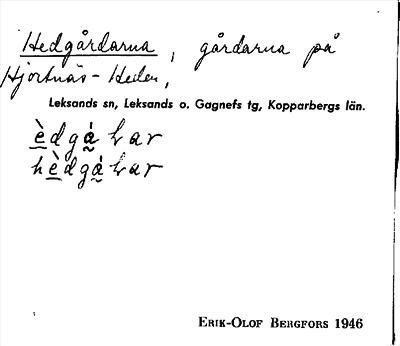 Hedgårdarna, gårdarna på
Hjortnäs-Heden,
Leksands sn, Leksands o. Gagnefs tg, Kopparbergs län.
ERIK-OLOF BERGFORS 1946